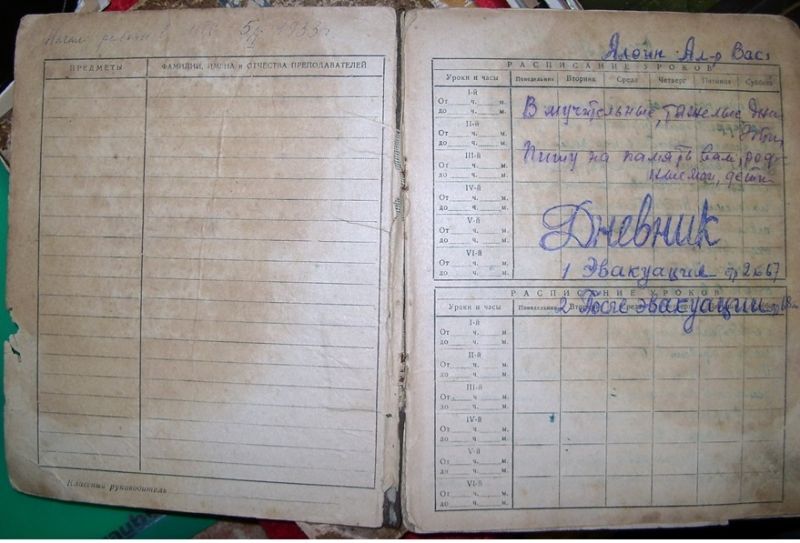 5/II 1933 г
ПРЕДМЕТЫ
ФАМИЛИИ, ИМЕНА и ОТЧЕСТВА ПРЕПОДАВАТЕЛЕЙ
Классный руководитель
Ал-р Вас.
РАСПИСАНИЕ УРОКОВ
Уроки и часы Понедельник Вторник Среда Четверг Пятница Суббота
I-й
От ч. м.
до ч. м.
II-й
От ч. м.
до ч. м.
III-й
От ч. м.
до ч. м.
IV-й
От ч. м.
до ч. м.
V-й
От ч. м.
до ч. м.
VI-й
От ч. м.
до ч. м.
В мучительные, тяжелые дни
эти,
пишу на память вам, род-
ные мои, дети
Дневник
1 Эвакуация стр 2 по 67
РАСПИСАНИЕ УРОКОВ
Уроки и часы Понедельник
2 После эвакуации
I-й
От ч. м.
до ч. м.
II-й
От ч. м.
до ч. м.
III-й
От ч. м.
до ч. м.
IV-й
От ч. м.
до ч. м.
V-й
От ч. м.
до ч. м.
VI-й
От ч. м.
до ч. м.